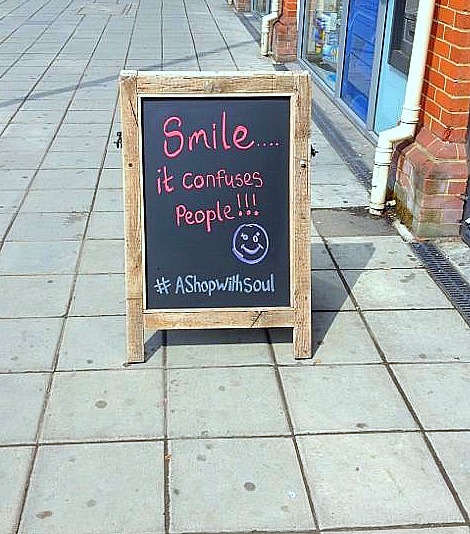 Smile....
it confuses
People!!!
#AShopwithSoul